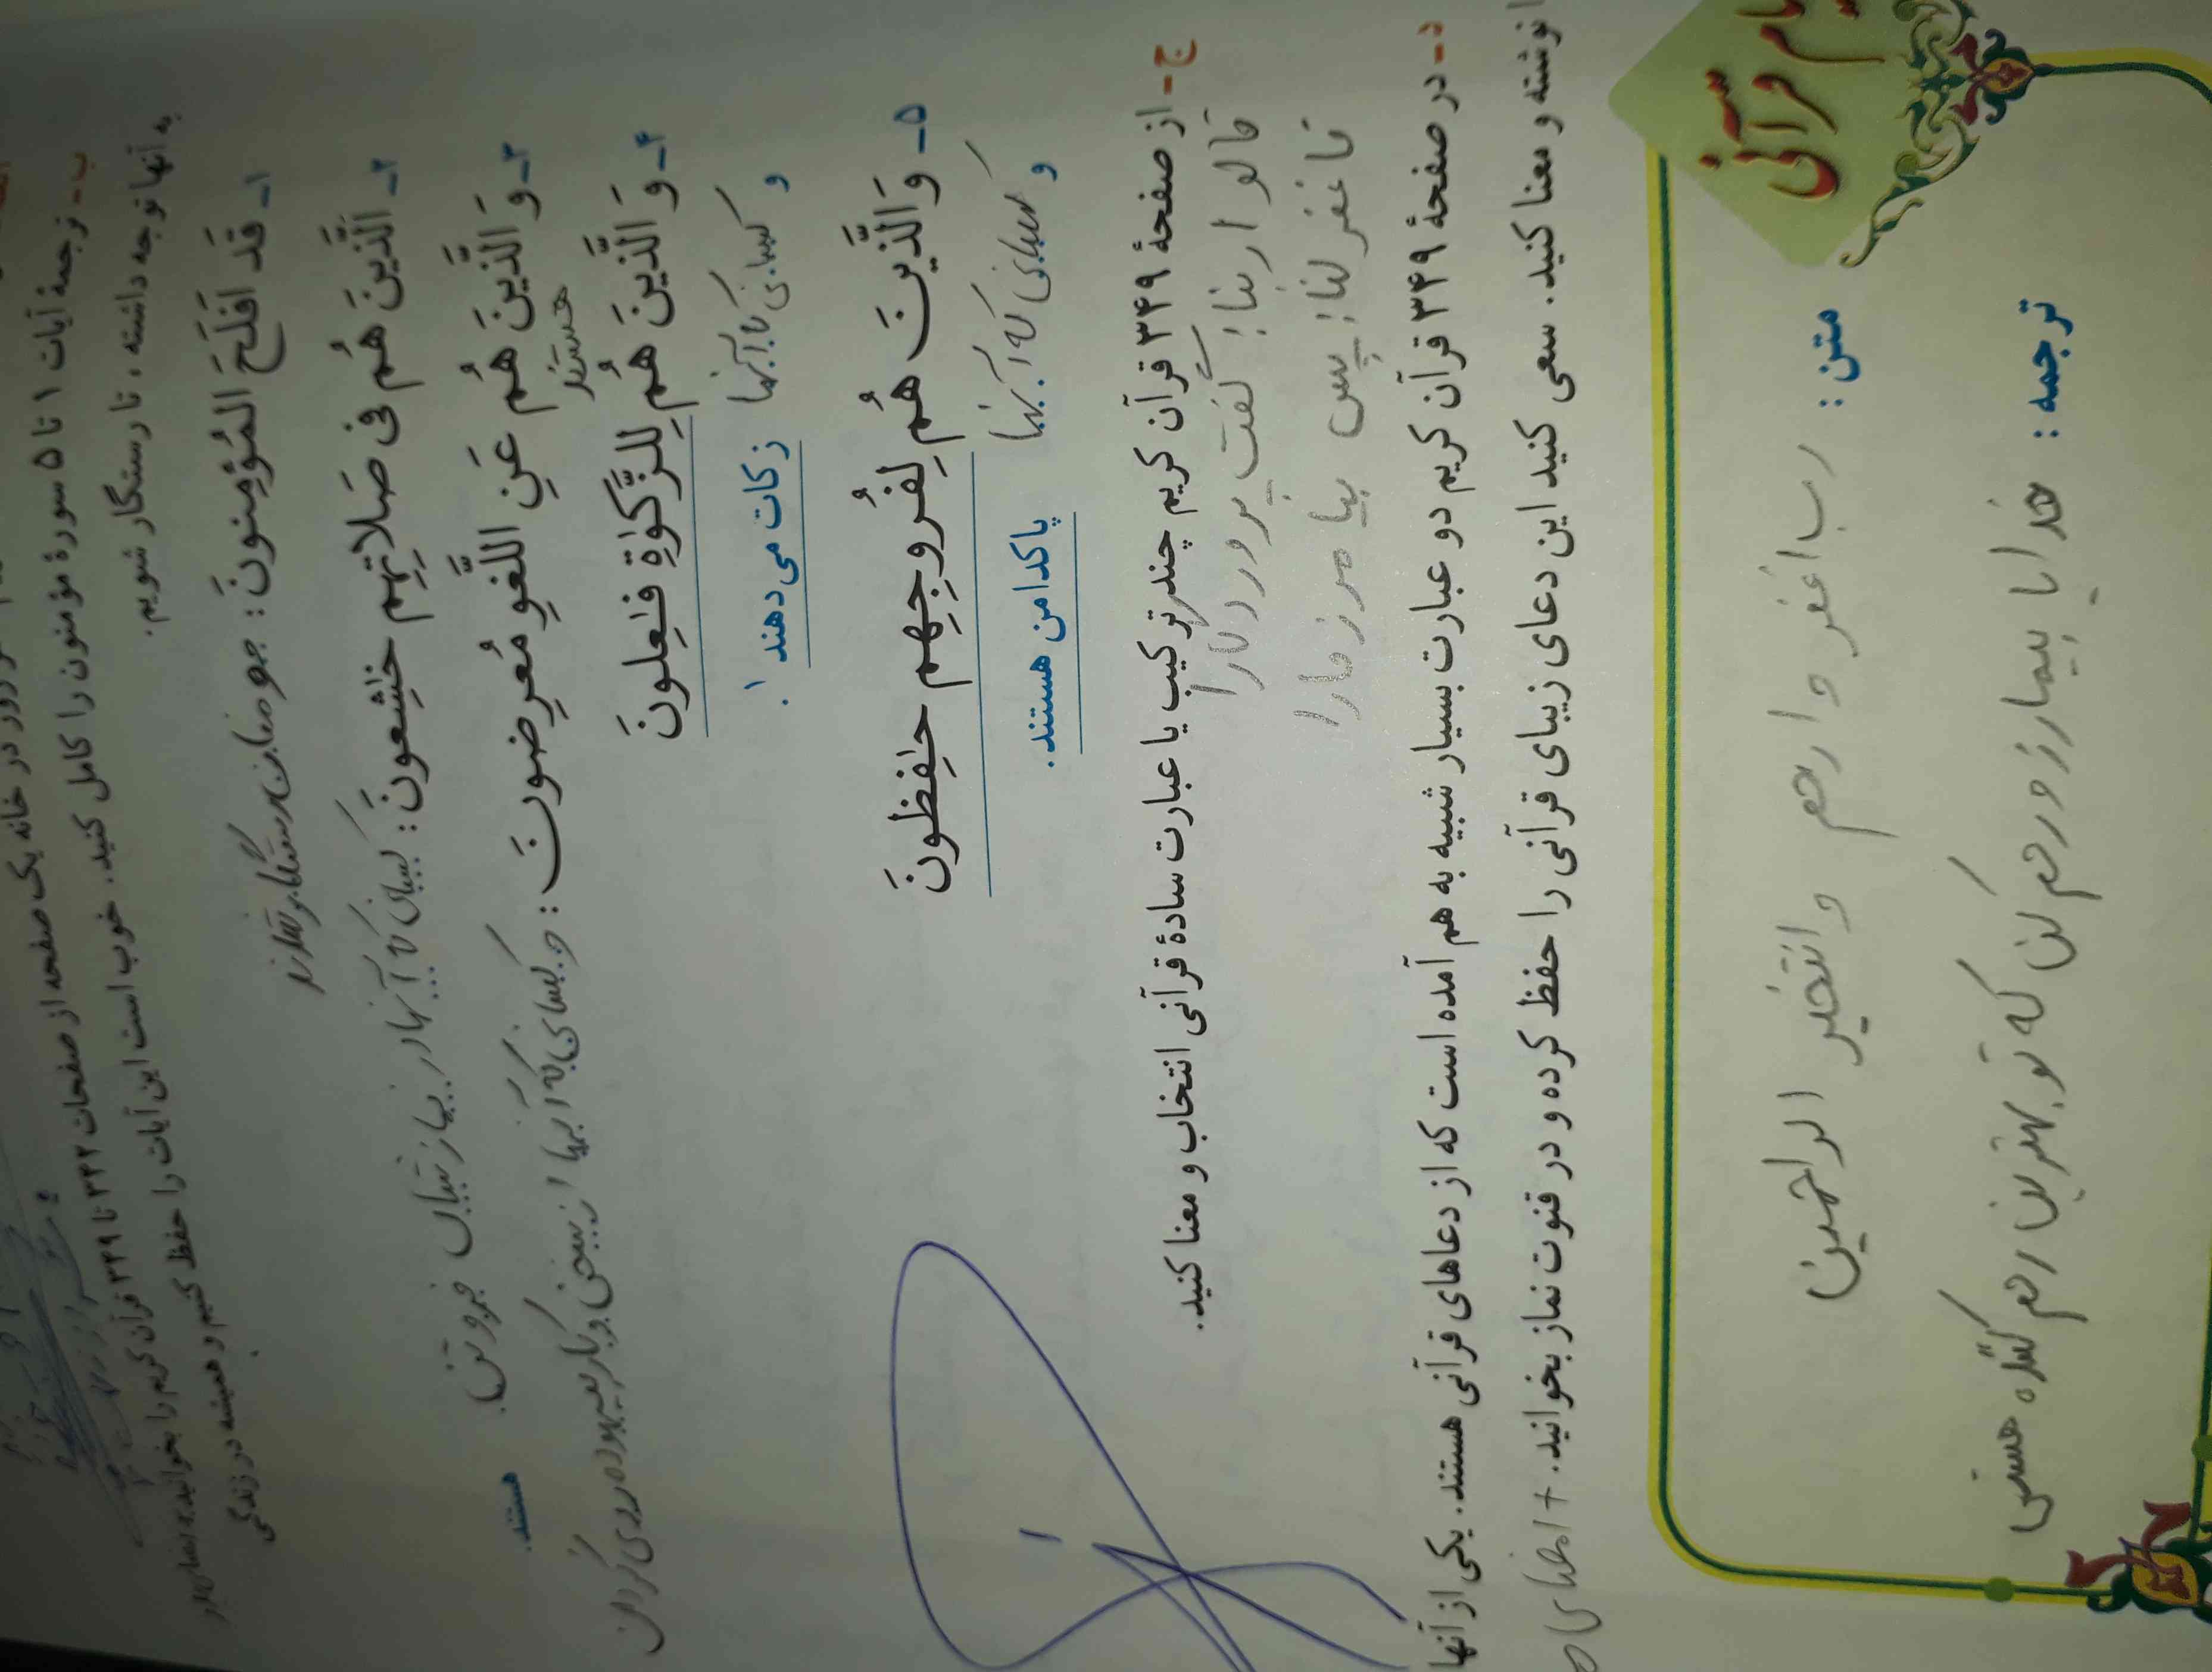 ب ـ ترجمهٔ آیات ۱ تا ۵ سورهٔ مؤمنون را کامل کنید. خوب است این آیات را حفظ کنیم و همیشه در زندگی
به آنها توجه داشته، تا رستگار شویم.
۱ـ قَد اَفلَحَ المُؤمِنونَ:
۲ـ اَلَّذینَ هُم فی صَلاتِهِم خاشِعونَ: کسانی که آنها در نمازشان فروتن
هستند.
۳ـ وَ الَّذینَ هُم عَنِ اللَّغوِ مُعرِضونَ: و کسانی که آنها از سخن و کار بیهوده روی گردان
هستند
۴ـ وَ الَّذینَ هُم لِلزَّکوٰةِ فاعِلونَ
و کسانی که آنها زکات می‌دهند ۱.
۵ـ وَ الَّذینَ هُم لِفُروجِهِم حافِظونَ
و کسانی که آنها پاکدامن هستند.
ج ـ از صفحهٔ ۳۴۹ قرآن کریم چند ترکیب یا عبارت سادهٔ قرآنی انتخاب و معنا کنید.
قالوا ربنا: گفت پروردگارا
فاغفر لنا: پس بیامرز مارا
د ـ در صفحهٔ ۳۴۹ قرآن کریم دو عبارت بسیار شبیه به هم آمده است که از دعاهای قرآنی هستند. یکی از آنها
را نوشته و معنا کنید. سعی کنید این دعای زیبای قرآنی را حفظ کرده و در قنوت نماز بخوانید. + امضای
پیام قرآنی
متن: رب اغفر و ارحم و انت خیر الراحمین
ترجمه: خدایا بیامرز و رحم کن که تو بهترین رحم کننده هستی